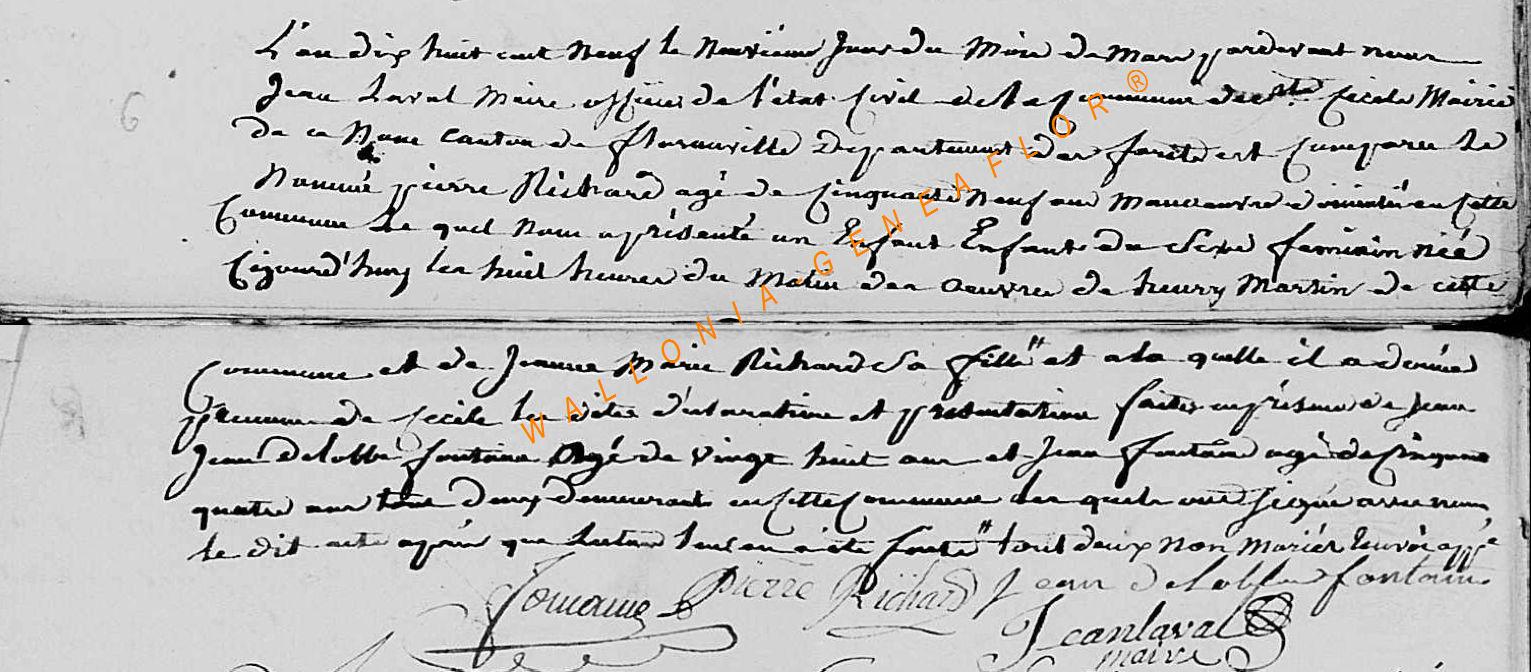 L'an dix huit cent Neuf le Neuvieme Jour du Mois de Mars pardevant nous
6
Jean Laval Maire officier de l'état Civil de la Commune de Ste Cecile Mairie
de ce Nom Canton de florenville Département des forêts est Comparu le
Nommé pierre Richard agé de Cinquante Neuf ans Manoeuvre domicilié en Cette
Commune Le quel Nous a présenté un Enfant Enfante du Sexe feminin née
Cejourd'huy les huit heures du Matin des Oeuvres de henry Martin de cette
Commune et de Jeanne Marie Richard Sa fille " et a la quelle il a donné
prenom de Cecile les dites déclaration et présentation faites en présence de Jean
Jean Delobbe fontaine Agé de vingt huit ans et Jean fontaine agé de Cinquante
quatre ans tous deux demeurants en Cette Commune les quels ont Signé avec nous
le dit acte après que lecture leur en a été faite " tout deux non Mariés
Fontaine Pierre Richard Jean Delobbe fontaine
Jean laval
maire
WALLONIA-GENEAFLOR®